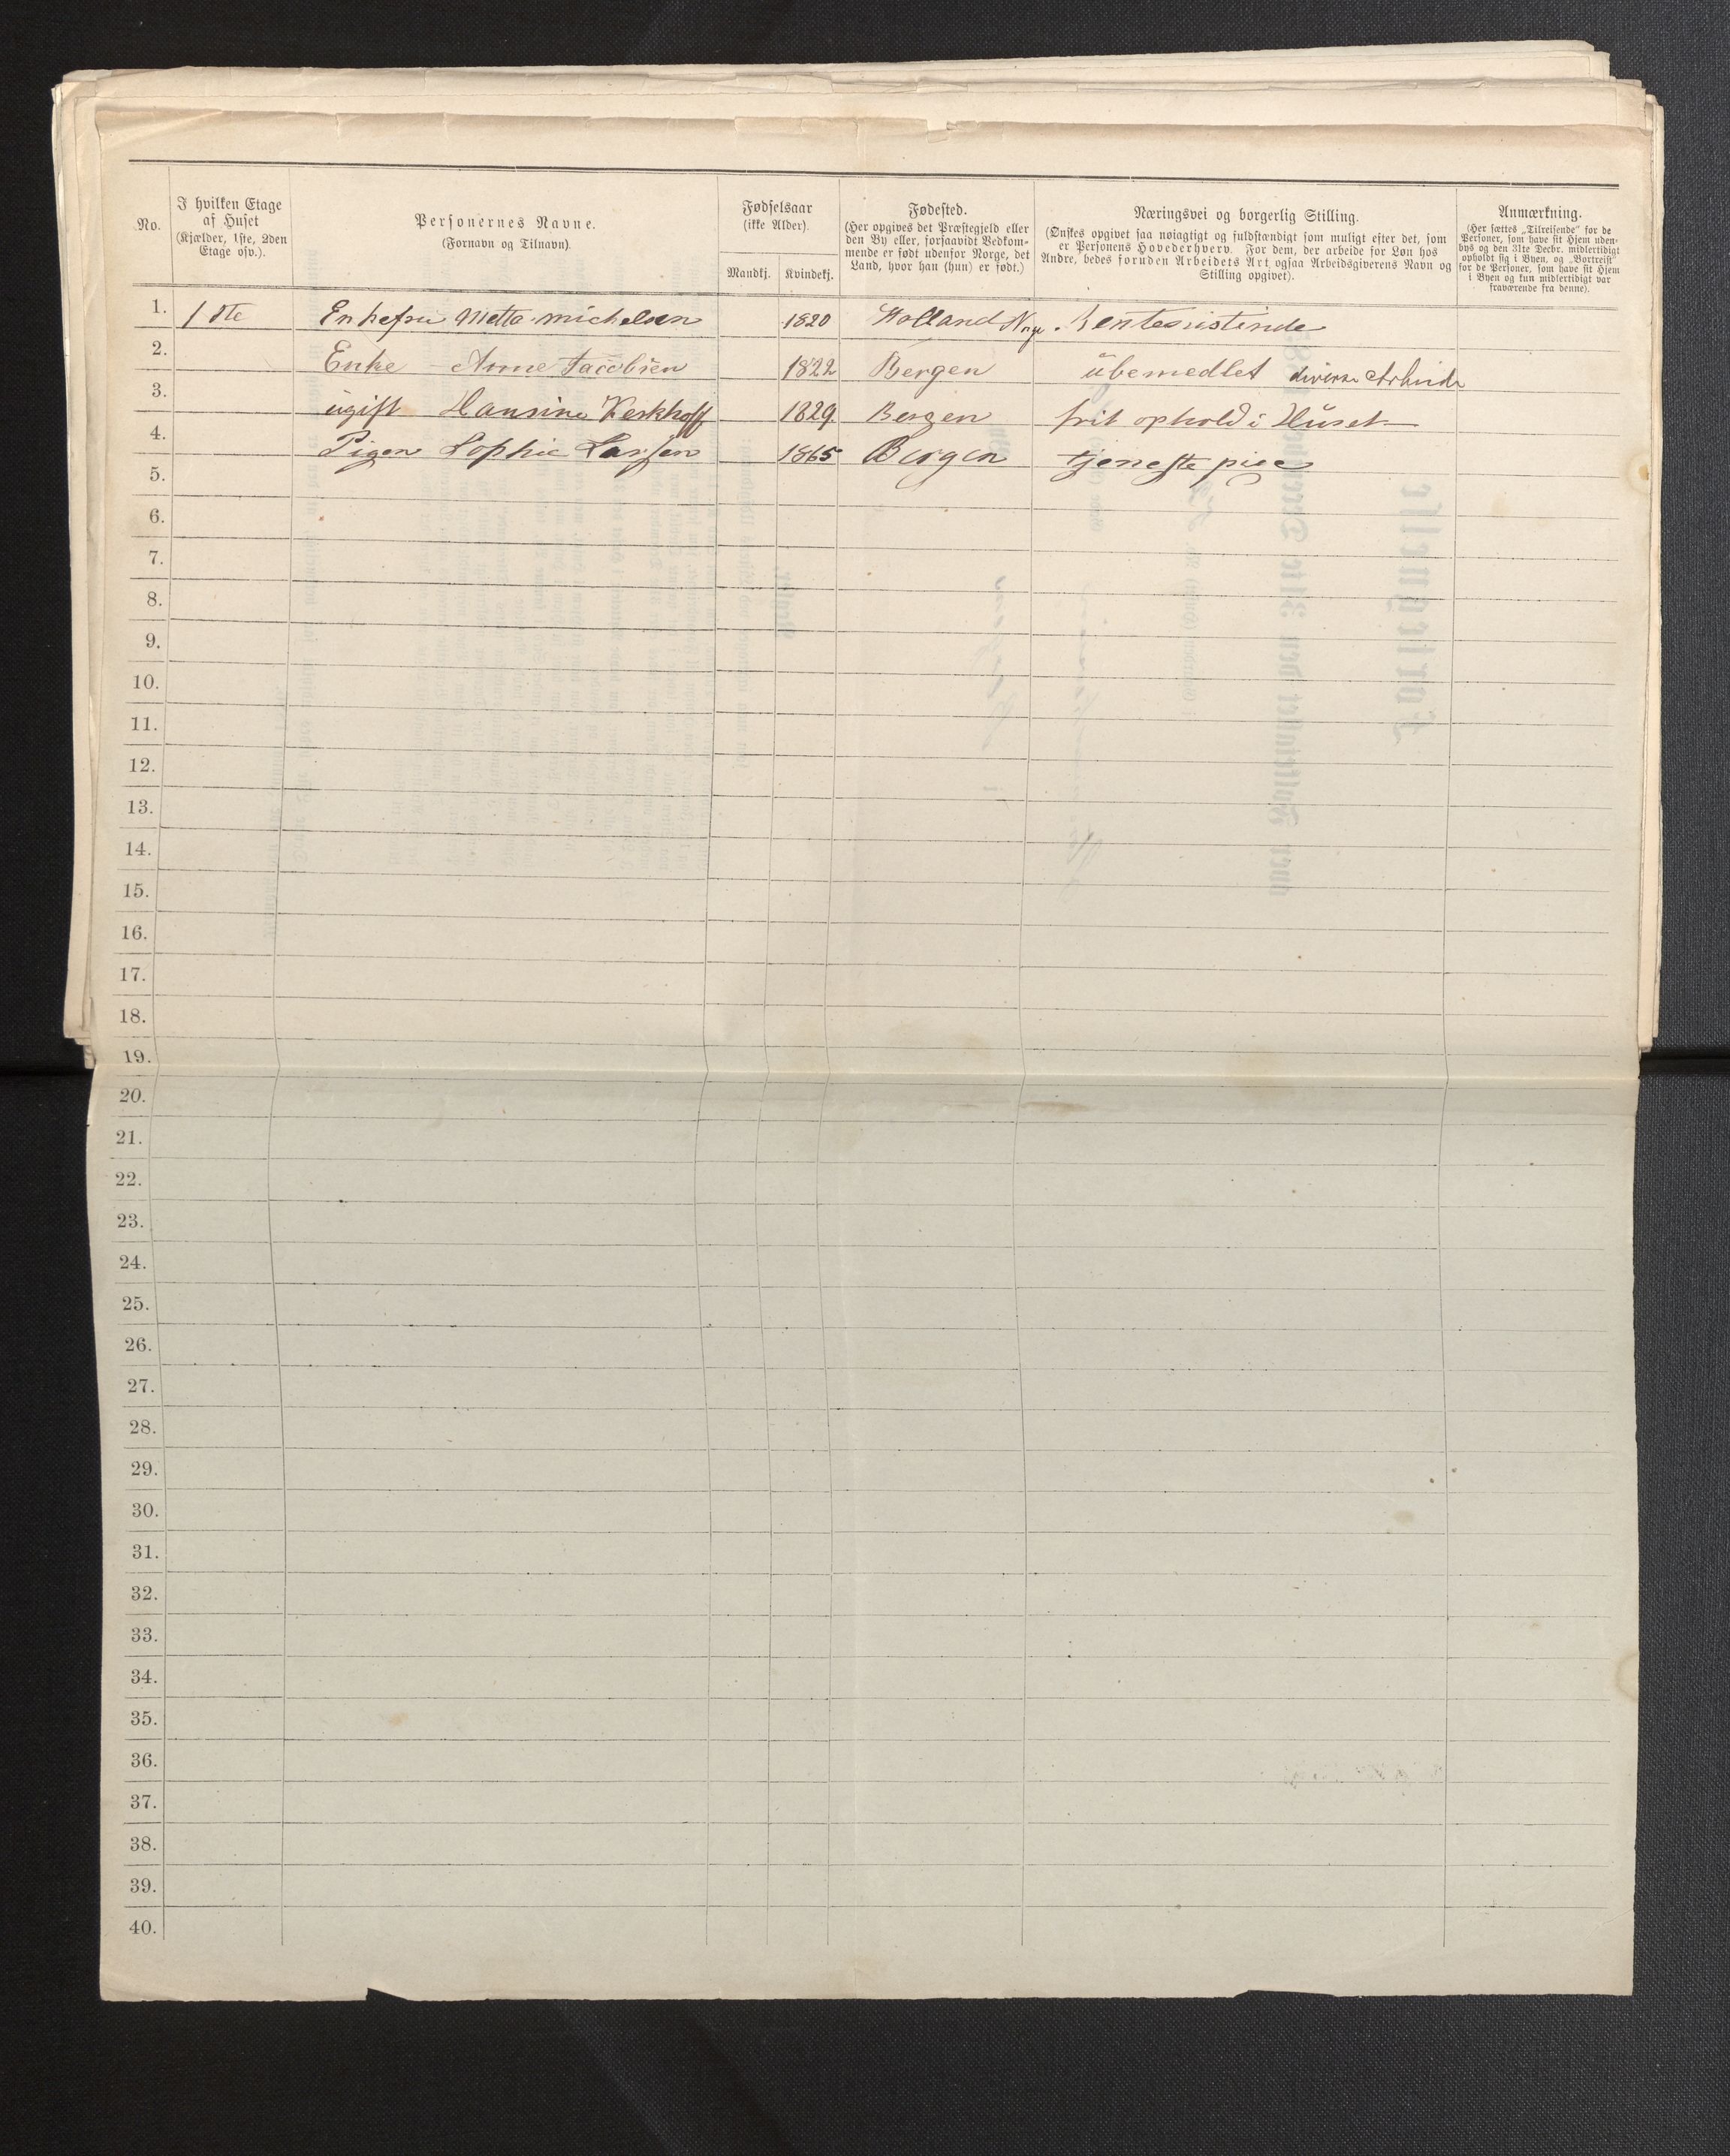 No.
I hvilken Etage
af Huset
(Kjælder, 1ste, 2den
Etage osv.).
Personernes Navne.
(Fornavn og Tilnavn).
Fødselsaar
(ikke Alder).
Mandkj. Kvindekj.
Fødested.
(Her opgives det Præstegjeld eller
den By eller, forsaavidt Vedkom-
mende er født udenfor Norge, det
Land, hvor han (hun) er født.)
Næringsvei og borgerlig Stilling.
(Ønskes opgivet saa nøiagtigt og fuldstændigt som muligt efter det, som
er Personens Hovederhverv. For dem, der arbeide for Løn hos
Andre, bedes foruden Arbeidets Art ogsaa Arbeidsgiverens Navn og
Stilling opgivet).
Anmærkning.
(Her sættes „Tilreisende“ for de
Personer, som have sit Hjem uden-
bys og den 31te Decbr. midlertidigt
opholdt sig i Byen, og „Bortreist“
for de Personer, som have sit Hjem
i Byen og kun midlertidigt var
fraværende fra denne).
1. 1 ste Enkefru Metta michelsen 1820 Holland Rentenistinde
2. Enke Anne Jacobsen 1822 Bergen ubemedlet diverse Arbeide
3. ugift Hansine Kerkhoff 1829 Bergen frit ophold i Huset
4. Pigen Sophie Larssen 1865 Bergen tjenestepige
5.
6.
7.
8.
9.
10.
11.
12.
13.
14.
15.
16.
17.
18.
19.
20.
21.
22.
23.
24.
25.
26.
27.
28.
29.
30.
31.
32.
33.
34.
35.
36.
37.
38.
39.
40.